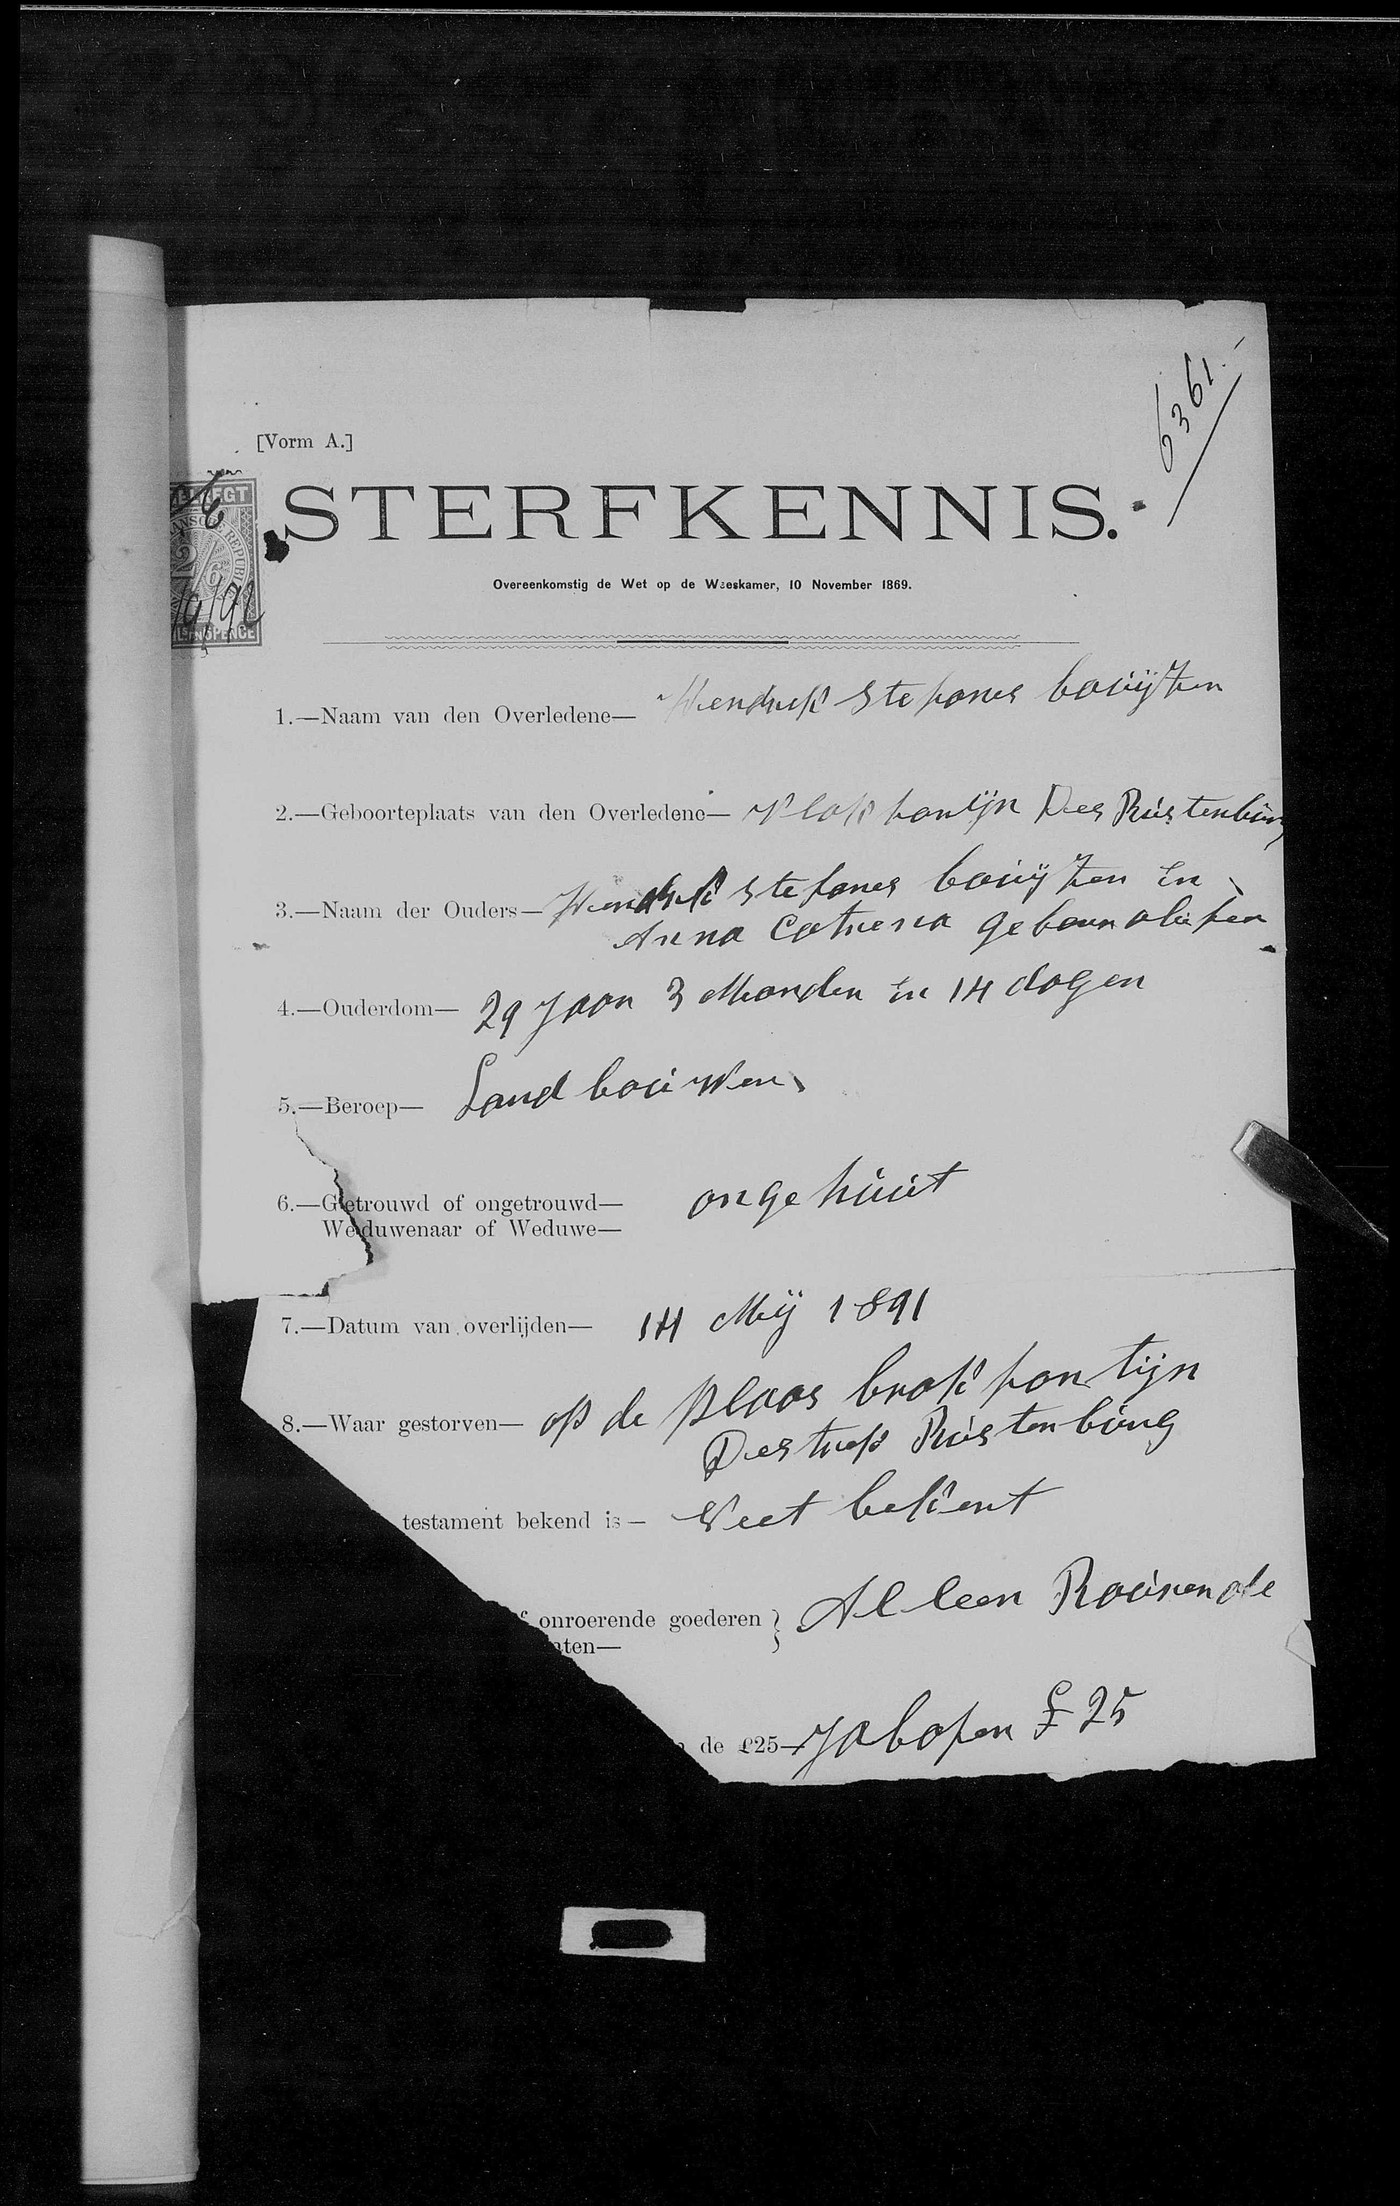 6361.
[Vorm A.]
STERFKENNIS.
Overeenkomstig de Wet op de Weeskamer, 10 November 1869.
1.—Naam van den Overledene— Hendrik Stefanes
2.—Geboorteplaats van den Overledene— fontijn Des Rústenbúrg
3.—Naam der Ouders— Hendrik Stefanes en
Anna Catriena
4.—Ouderdom— 29 Jaar 3 Manden en 14 dagen
5.—Beroep— Land boúwer
6.—Getrouwd of ongetrouwd— ongehúút
Weduwenaar of Weduwe—
7.—Datum van overlijden— 14 Mij 1891
8.—Waar gestorven— op de plaas brakfontijn
Destrik Rústenbúrg
testament bekend is— Neet bekent
f onroerende goederen } Alleen Roúrende
aten—
de £25— Ja bofen £25